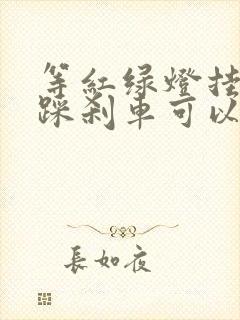 等紅绿燈挂
踩刹車可以
長如夜